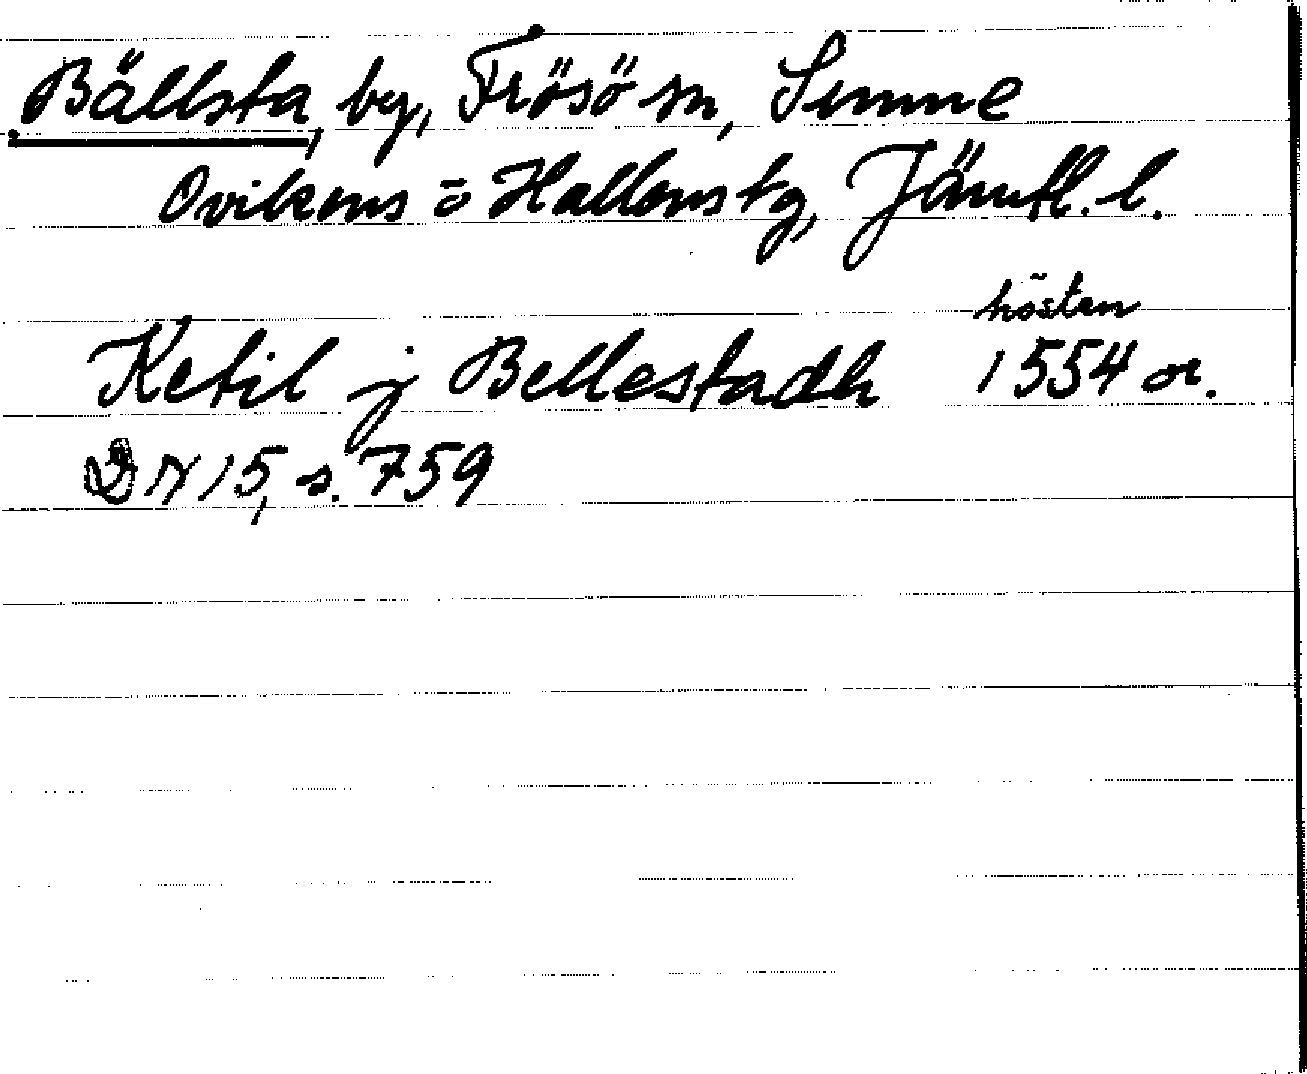 Bällsta, by, Frösö sn, Sunne
Ovikens o Hallens tg, Jämtl. l.
hösten
Ketil j Bellestadh 1554 or.
DN 15, s. 759